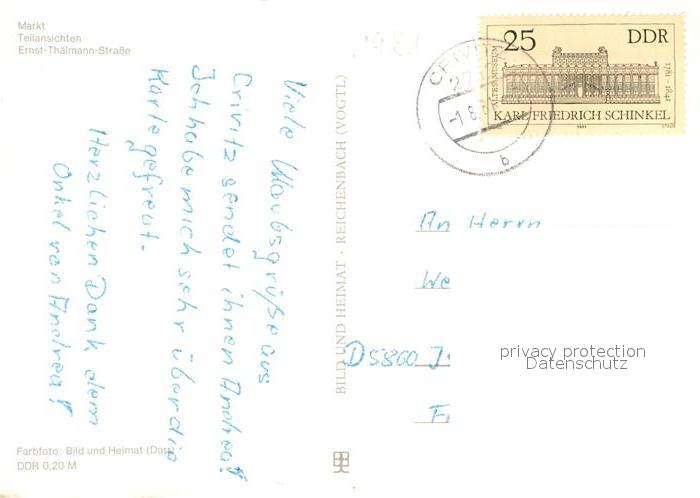 Markt
Teilansichten
Ernst-Thälmann-Straße
Viele Urlaubsgrüße aus
Crivitz sendet ihnen Andrea!
Ich habe mich sehr über die
Karte gefreut.
Herzlichen Dank dem
Onkel von Andrea!
Farbfoto: Bild und Heimat (Darr)
DDR 0,20 M
BILD UND HEIMAT · REICHENBACH (VOGTL)
25 DDR
ALTES MUSEUM
1781 – 1841
KARL FRIEDRICH SCHINKEL
1981
CRIVITZ
27
-1.8.
b
An Herrn
We
D 5860 J
F
privacy protection
Datenschutz